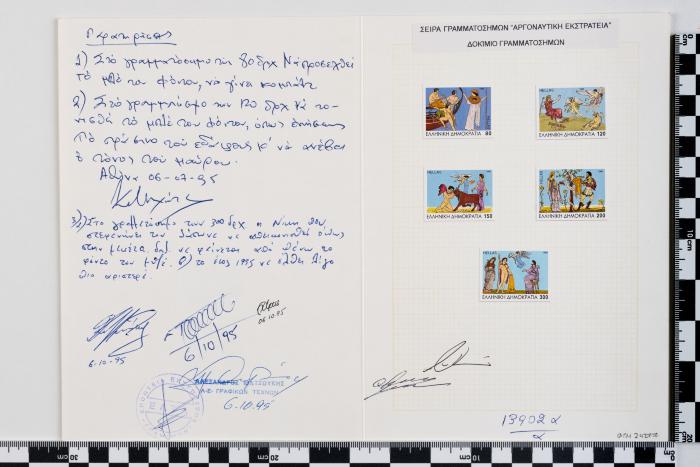 Παρατηρήσεις
1) Στο γραμματόσημο των 80 δρχ Να προσεχθεί
το μπλέ του φόντου, να γίνει
2) Στο γραμματόσημο των 120 δρχ Να το-
νισθεί το μπλέ του φόντου, όπως επίσης
το πράσινο του εδάφους κ' να ανέβει
ο τόνος του μαύρου.
Αθήνα 06-07-95
3) Στο γραμματόσημο των 300 δρχ η Νίκη που
στεφανώνει τον Ιάσωνα να όπως
στην μακέτα, δηλ. να φαίνεται από πάνω το
φόντο του μπλέ. β) το έτος 1995 να έλθει λίγο
πιο αριστερά.
6.10.95
6/10/95
06.10.95
ΑΛΕΞΑΝΔΡΟΣ ΜΑΤΣΟΥΚΗΣ
Α.Ε. ΓΡΑΦΙΚΩΝ ΤΕΧΝΩΝ
6.10.95
ΣΕΙΡΑ ΓΡΑΜΜΑΤΟΣΗΜΩΝ "ΑΡΓΟΝΑΥΤΙΚΗ ΕΚΣΤΡΑΤΕΙΑ"
ΔΟΚΙΜΙΟ ΓΡΑΜΜΑΤΟΣΗΜΩΝ
HELLAS
ΕΛΛΗΝΙΚΗ ΔΗΜΟΚΡΑΤΙΑ 80
HELLAS
ΕΛΛΗΝΙΚΗ ΔΗΜΟΚΡΑΤΙΑ 120
HELLAS
ΕΛΛΗΝΙΚΗ ΔΗΜΟΚΡΑΤΙΑ 150
HELLAS
ΕΛΛΗΝΙΚΗ ΔΗΜΟΚΡΑΤΙΑ 200
HELLAS
ΕΛΛΗΝΙΚΗ ΔΗΜΟΚΡΑΤΙΑ 300
13902 α
α
10
20
30 cm
10
20 cm